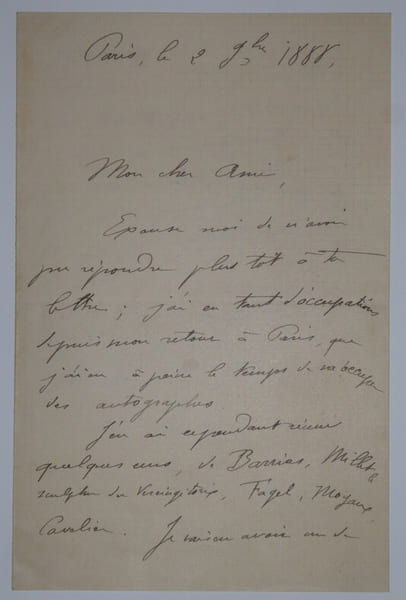 Paris, le 2 9bre 1888,
Mon cher Ami,
Excuse moi de n'avoir
pu répondre plus tôt à ta
lettre; j'ai eu tant d'occupations
depuis mon retour à Paris, que
j'ai eu à peine le temps de m'occuper
des autographes.
J'en ai cependant réuni
quelques uns, de Barrias, Millet
sculpteur du Vercingétorix, Fagel, Moyaux
Cavelier. Je avoir un de